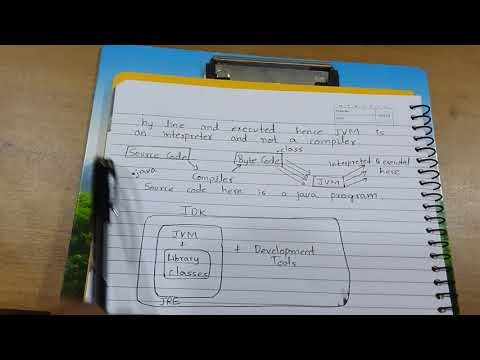 by line and executed hence JVM is
an interpreter and not a compiler.
.class
Source Code Byte Code Interpreted & executed
.java Compiler JVM here
Source code here is a java program.
JDK
JVM
+
Library + Development
classes Tools
JRE